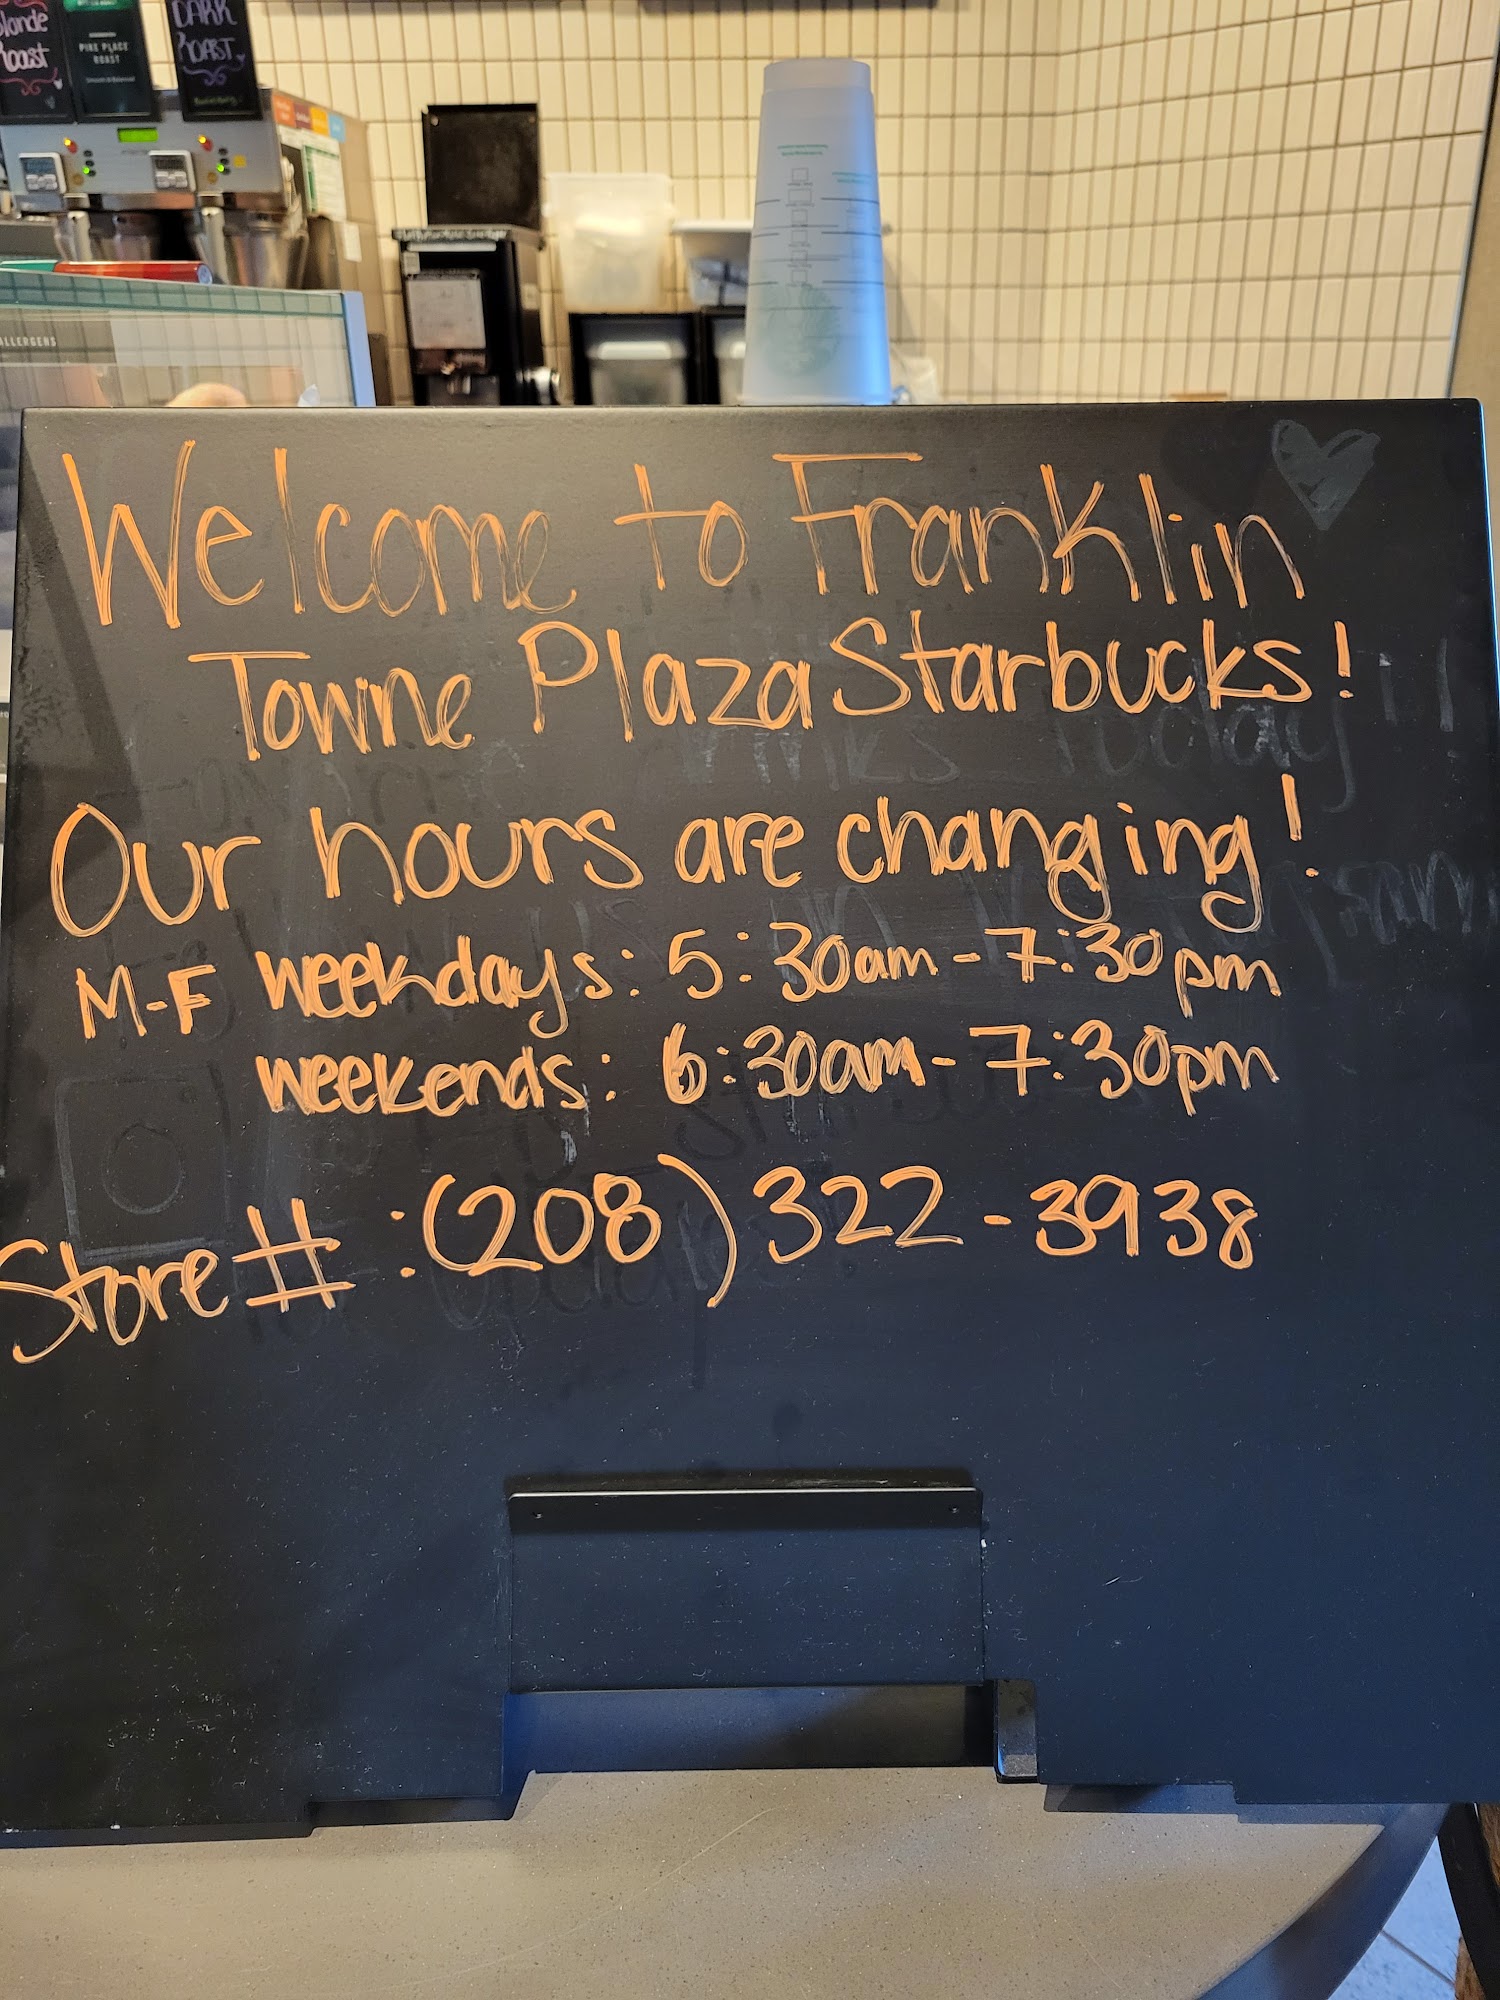 Blonde
Roast
PIKE PLACE
ROAST
Smooth & Balanced
DARK
ROAST
ALLERGENS
Welcome to Franklin
Towne Plaza Starbucks!
Our hours are changing!
M-F weekdays: 5:30am-7:30pm
weekends: 6:30am-7:30pm
Store#: (208) 322-3938